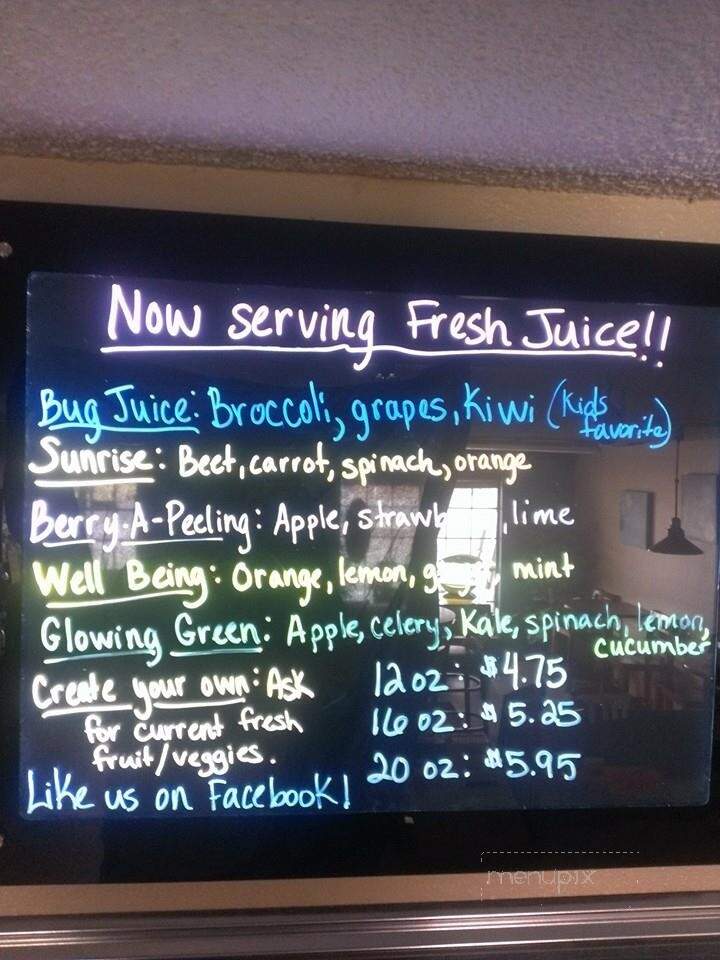 Now serving Fresh Juice!!
Bug Juice: Broccoli, grapes, Kiwi (Kids favorite)
Sunrise: Beet, carrot, spinach, orange
Berry-A-Peeling: Apple, , lime
Well Being: Orange, lemon, , mint
Glowing Green: Apple, celery, Kale, spinach, lemon,
cucumber
Create your own: Ask
for current fresh
fruit/veggies.
12 oz: $4.75
16 oz: $5.25
20 oz: $5.95
Like us on Facebook!
menupix